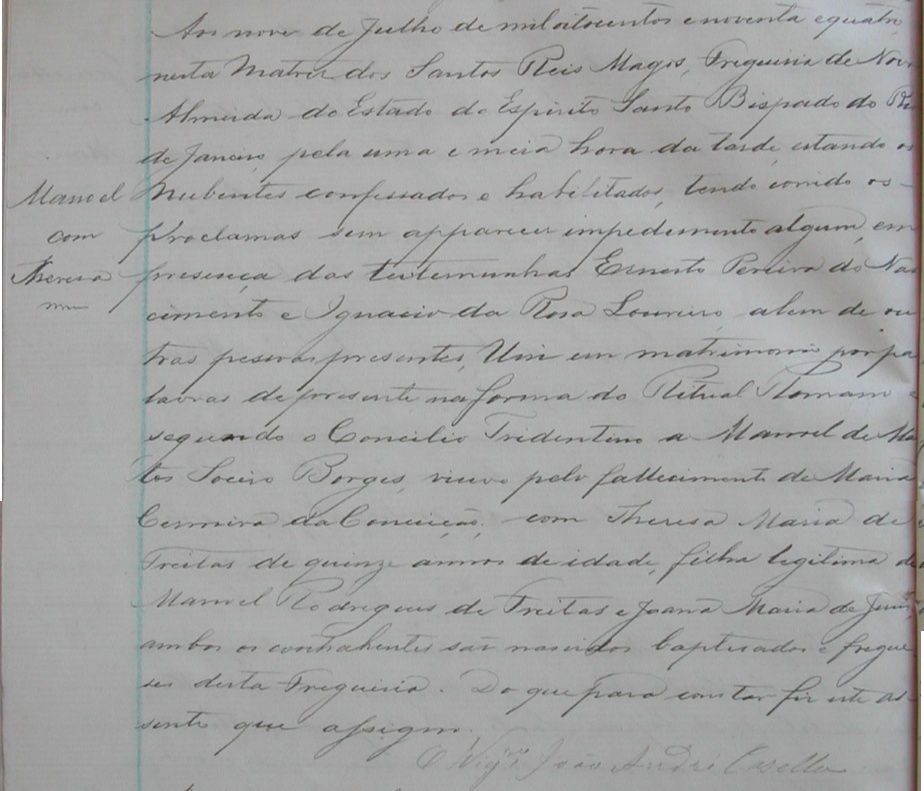 Aos nove de Julho de mil oitocentos e noventa e quatro,
nesta Matriz dos Santos Reis Magos, Freguisia de Nov
Almeida do Estado do Espirito Santo Bispado do Ri
de Janeiro, pela uma e meia hora da tarde, estando os
Manoel
Nubentes confessados e habilitados, tendo corrido os
com
proclamas sem apparecer impedimento algum, em
Theresa
presença das testemunhas Ernesto Pereira do Nas
cimento e Ignacio da Rosa Loureiro, alem de ou
tras pessoas presentes, Uni em matrimonio por pa
lavras de presente na forma do Ritual Romano e
segundo o Concilio Tridentino a Manoel de Ma
tos Soeiro Borges, viuvo pelo fallecimento de Maria
da Conceição, com Theresa Maria de
Freitas de quinze annos de idade, filha legitima de
Manoel Rodrigues de Freitas e Joana Maria de Jesus,
ambos os contrahentes são nascidos baptisados e fregue
ses desta Freguisia. Do que para constar fiz este as
sento que assigno.
O Vigrº João André Casella